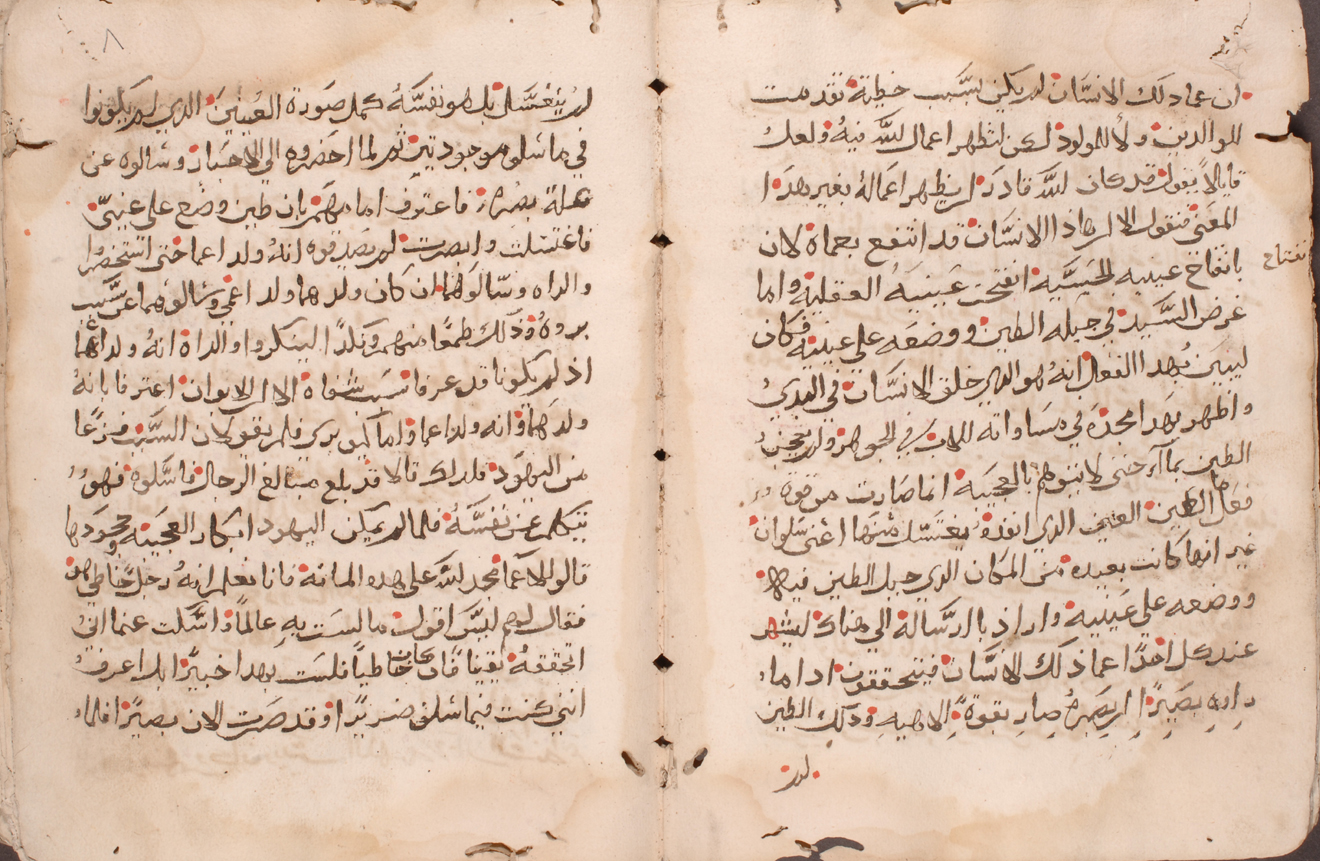 ان عما دلك الانسان لم يكن لسبب خطية تقدمت
للوالدين ولا للمولود لكن لتظهر اعمال الله فيه ولعل
قايلاً يقول قد كان الله قادرا ان يظهر اعماله بغير هدا
المعنى فنقول الا ان هدا الانسان قد انتفع بعماه لان
بانفتاح عينيه الحسيه انفتحت عينيه العقليه واما
تفتاح
غرض السيد في جبله الطين ووضعه على عينيه فكان
ليبين بهدا الفعل انه هو الدي خلق الانسان في البدي
واظهر بهدا مجده في مساواته للاب في الجوهر ولم يعجن
الطين بماء حتى لا يتوهم بالعجيبه انما صارت من قوه
فعل الطين العين الدي انفده يغتسل منها اعني سلوان
غير انها كانت بعيده من المكان الدي جبل الطين فيه
ووضعه على عينيه واراد بارساله الي هناك ليشهر
عند كل احد عما دلك الانسان فيتحققون ادا ما
راوه بصيرًا ان بصره صار بقوة الاهيه ودلك الطين
لم
لم يتغسل بل هو نفسه كمل صورة العينين الدي لم يكونوا
في ما سلف موجودتين ثم لما احضروه الي الاحبار وسالوه عن
علة بصره فاعترف امامهم بان طين وضع على عيني
فاغتسلت وابصرت لم يصدقوه انه ولد اعما حتى استحضروا
والداه وسالوهما ان كان ولدهما ولد اعمى وسالوهما عن سبب
بروه ودلك طمعًا منهم لينكروا والداه انه ولد اعما
اد لم يكونا قد عرفا سبب شفاه الا ان الابوان اعترفا بانه
ولدهما وانه ولد اعما واما كيف بري فلم يقولان السبب فزعًا
من اليهود فلدلك قالا قد بلغ مبالغ الرجال فاسلوه فهو
يتكلم عن نفسه فلما لم يمكن اليهود انكار العجيبه وجحودها
قالو للاعما مجد الله على هده فانا نعلم انه رجل خاطي
فقال لهم ليس اقول ما لست به عالمًا واسلت عما اني
اتحققه يقينا فان كان خاطياً فلست بهدا خبيرًا بل اعرف
انني كنت فيما سلف ضريرًا وقد صرت الان بصيرًا فلما